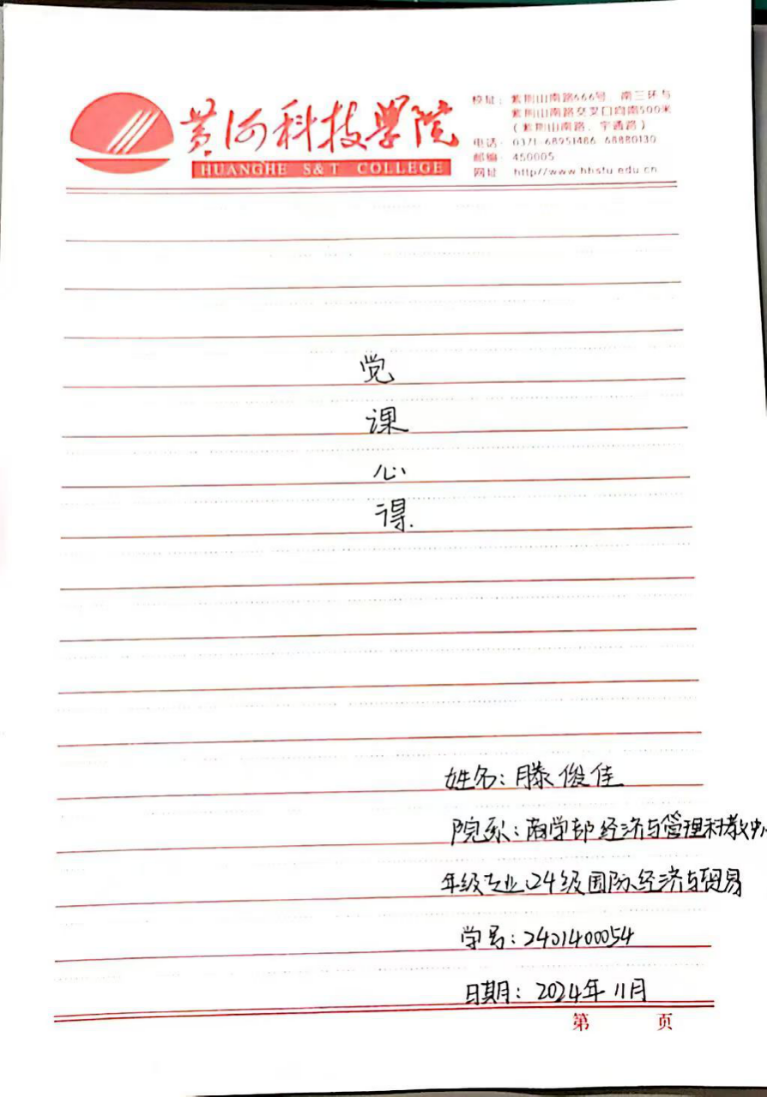 黄河科技学院
HUANGHE S&T COLLEGE
校址：紫荆山南路666号，南三环与
紫荆山南路交叉口向南500米
（紫荆山南路、宇通路）
电话：0371-68951486 68880130
邮编：450005
网址：http//www.hhstu.edu.cn
党
课
心
得.
姓名：滕俊佳
院系：商学部经济与管理科教中心
年级专业：24级国际经济与贸易
学号：2401400054
日期：2024年11月
第 页